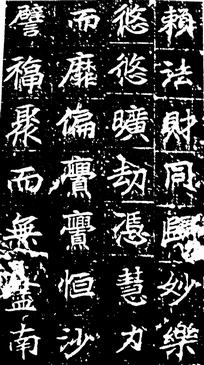 賴法財同妙樂
悠悠曠劫憑慧力
而靡偏亹亹恒沙
譬福聚而無盡南